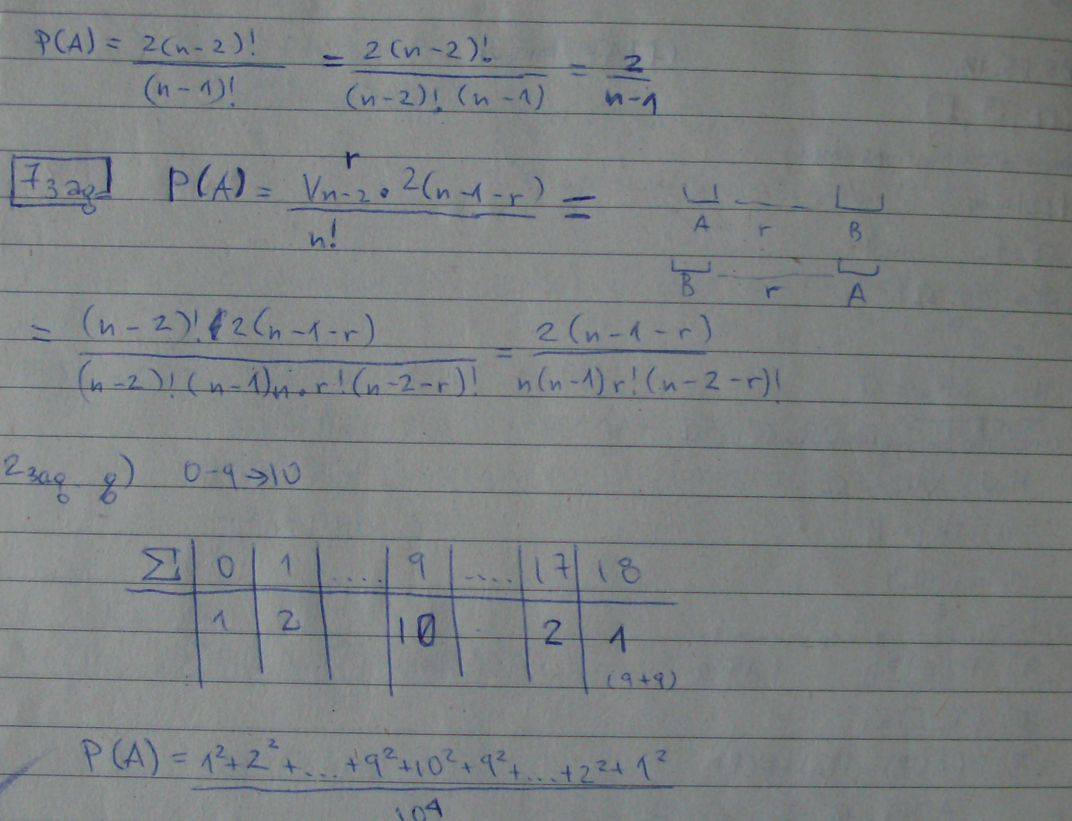 P(A) = 2(n-2)! / (n-1)! = 2(n-2)! / (n-2)! (n-1) = 2 / n-1
7 зад P(A) = V^r_{n-2} · 2(n-1-r) / n! =
A r B
B r A
= (n-2)! 2(n-1-r) / (n-2)! (n-1)n · r! (n-2-r)! = 2(n-1-r) / n(n-1) r! (n-2-r)!
2 зад g) 0-9→10
Σ 0 1 .... 9 .... 17 18
1 2 10 2 1
(9+9)
P(A) = 1²+2²+...+9²+10²+9²+...+2²+1² / 10⁴